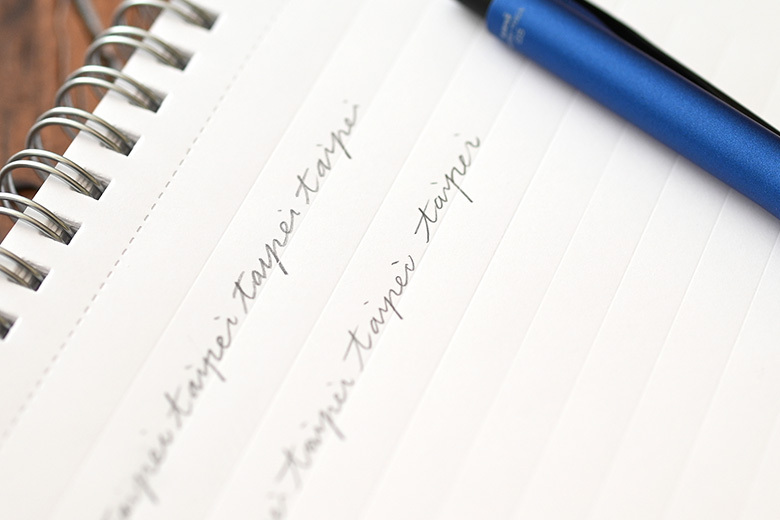 taipei taipei taipei taipei
taipei taipei taipei